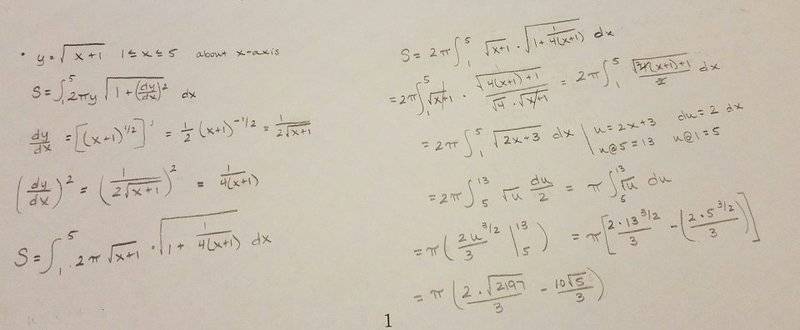 • y = √(x+1) 1 ≤ x ≤ 5 about x-axis
S = ∫₁⁵ 2πy √(1 + (dy/dx)²) dx
dy/dx = [(x+1)^(1/2)]' = 1/2 (x+1)^(-1/2) = 1/(2√(x+1))
(dy/dx)² = (1/(2√(x+1)))² = 1/(4(x+1))
S = ∫₁⁵ 2π √(x+1) · √(1 + 1/(4(x+1))) dx
S = 2π ∫₁⁵ √(x+1) · √(1 + 1/(4(x+1))) dx
= 2π ∫₁⁵ √(x+1) · √(4(x+1)+1)/(√4 · √(x+1)) = 2π ∫₁⁵ √(4(x+1)+1)/2 dx
= 2π ∫₁⁵ √(2x+3) dx | u = 2x+3 du = 2 dx
u@5 = 13 u@1 = 5
= 2π ∫₅¹³ √u du/2 = π ∫₅¹³ √u du
= π (2u^(3/2)/3 |₅¹³) = π [2·13^(3/2)/3 - (2·5^(3/2)/3)]
= π (2·√2197/3 - 10√5/3)
1